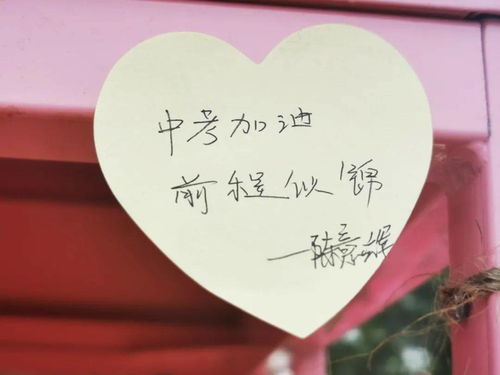 中考加油
前程似锦
—陈